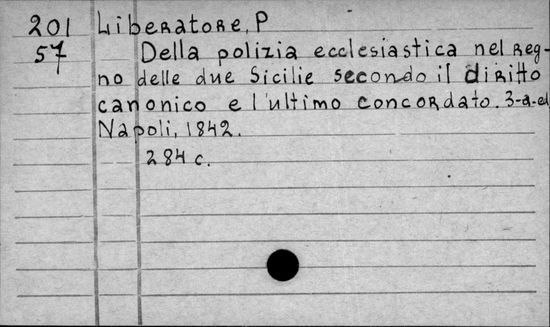 201 Liberatore, P
57 Della polizia ecclesiastica nel Reg-
no delle due Sicilie secondo il diritto
canonico e l'ultimo concordato. 3-a-ed
Napoli, 1842.
284 c.